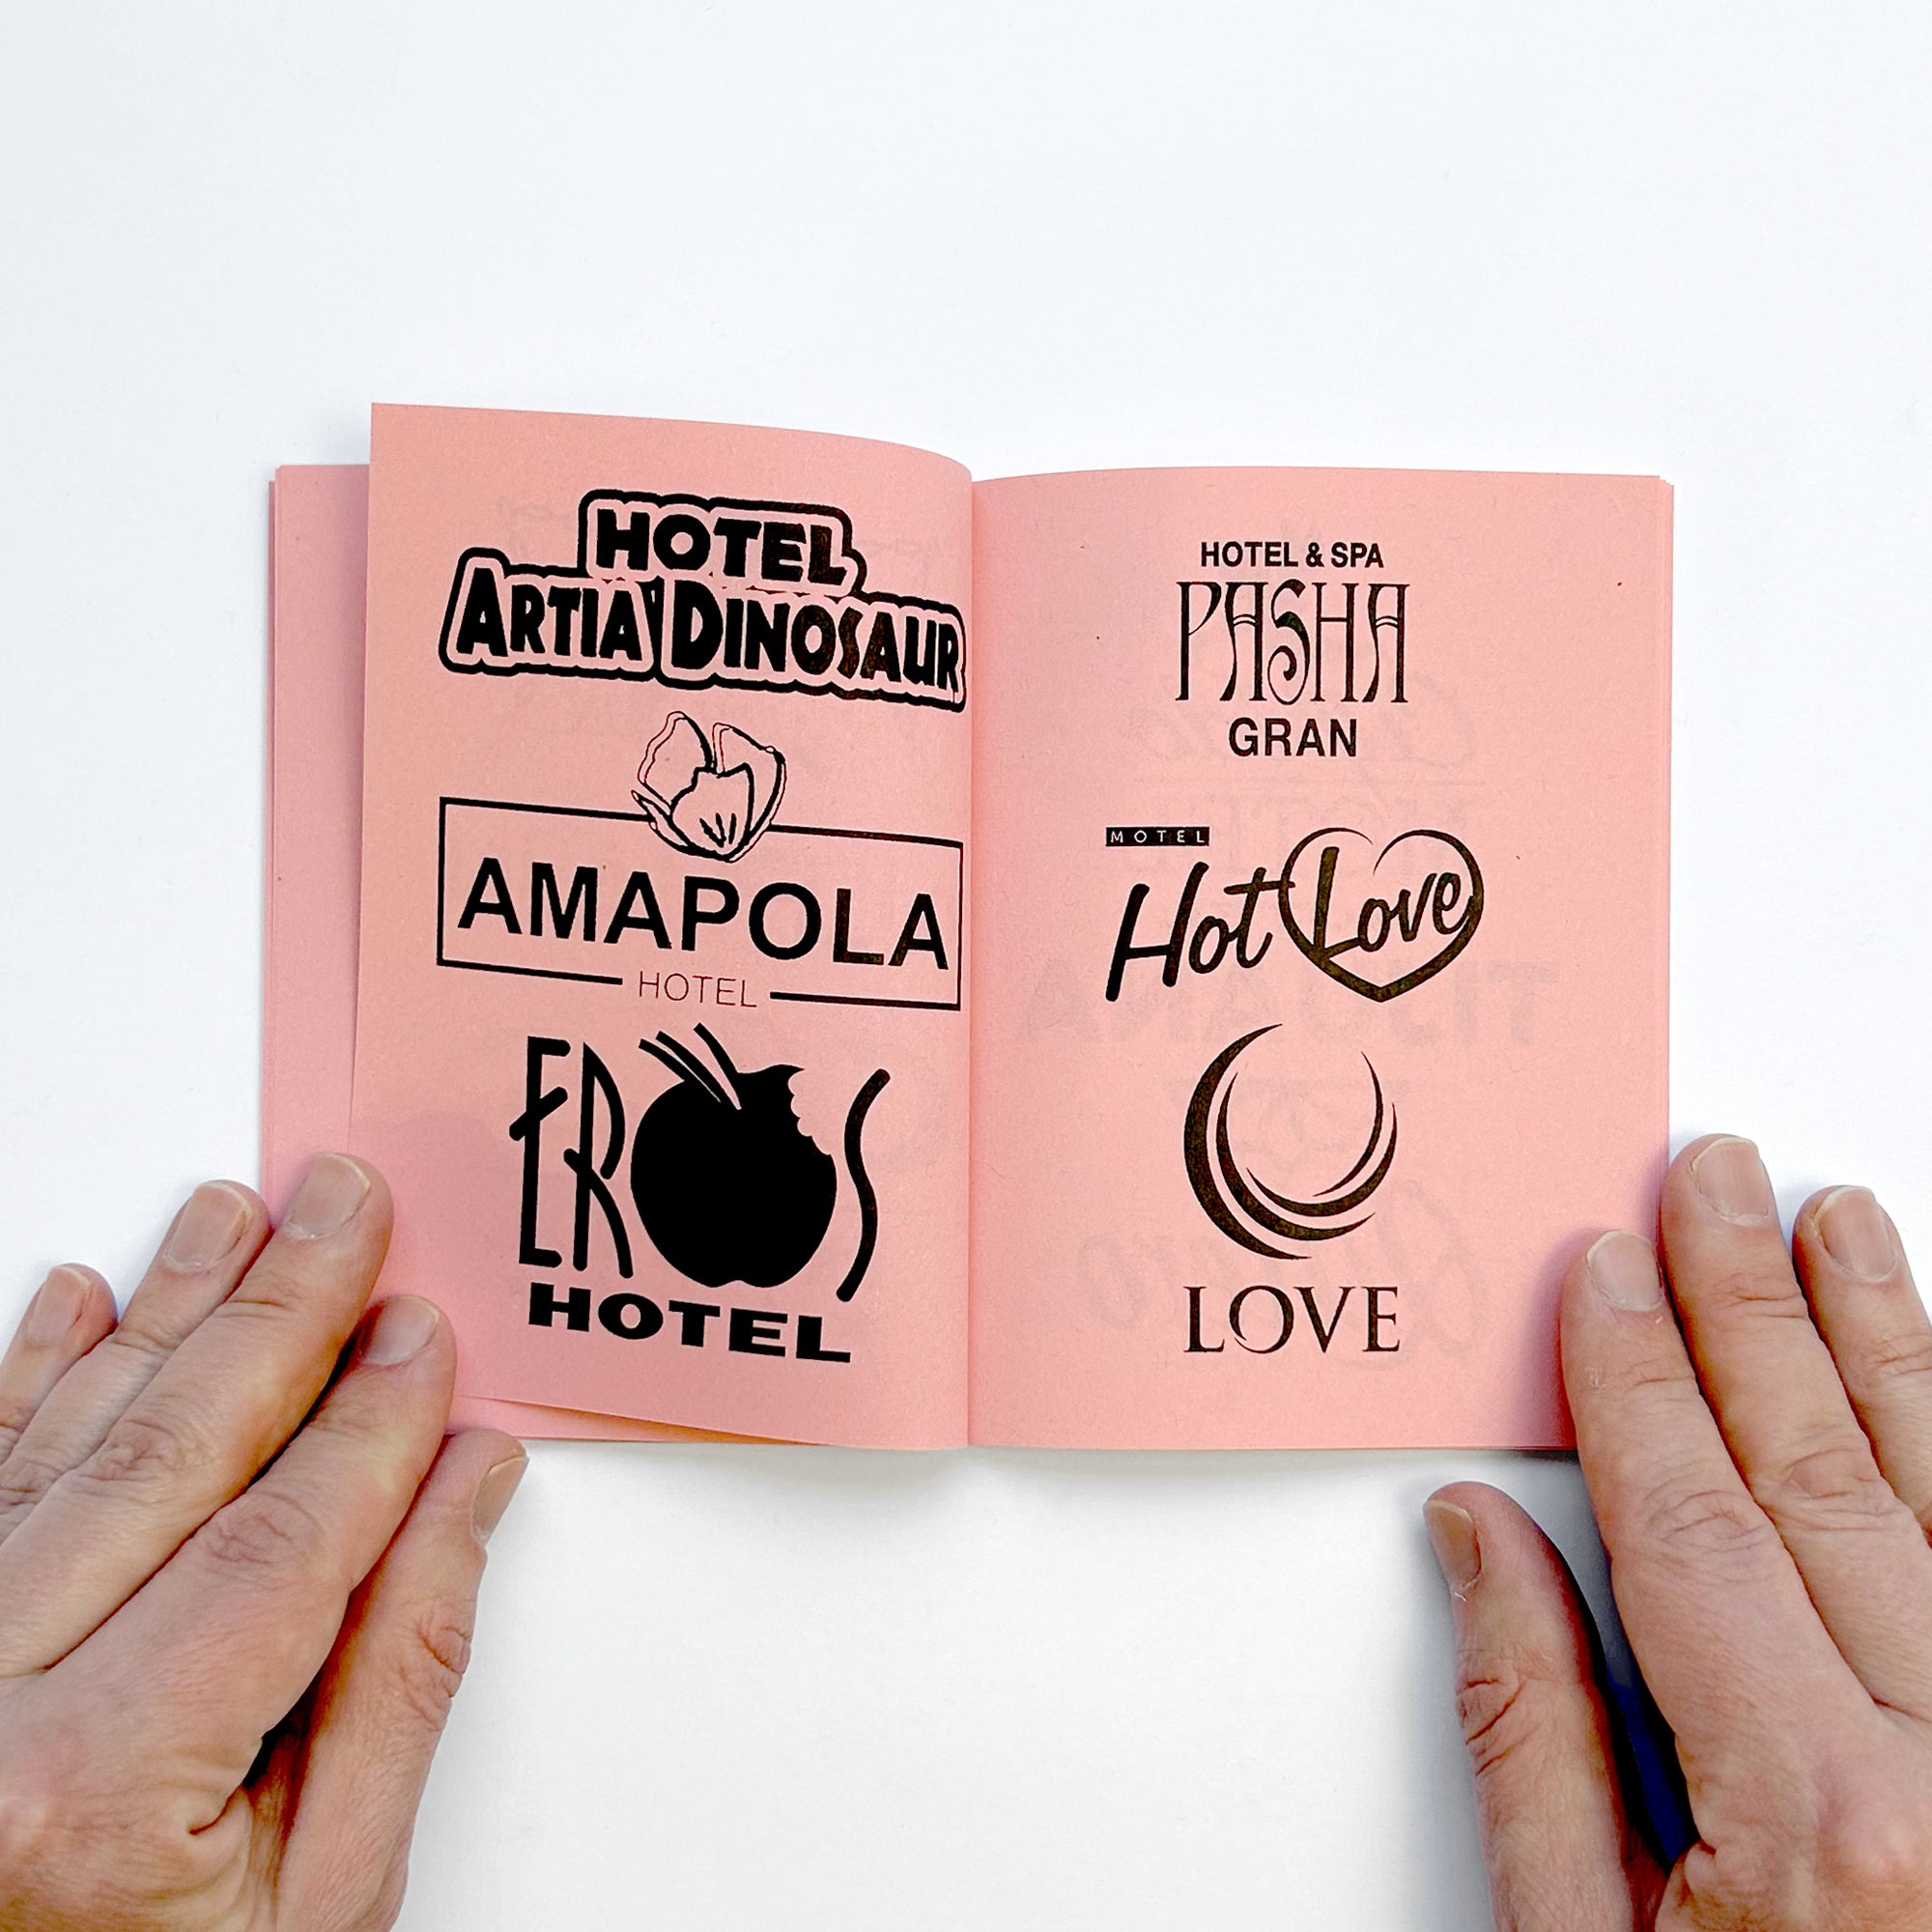 HOTEL
ARTIA DINOSAUR
AMAPOLA
HOTEL
EROS
HOTEL
HOTEL & SPA
PASHA
GRAN
MOTEL
Hot Love
LOVE